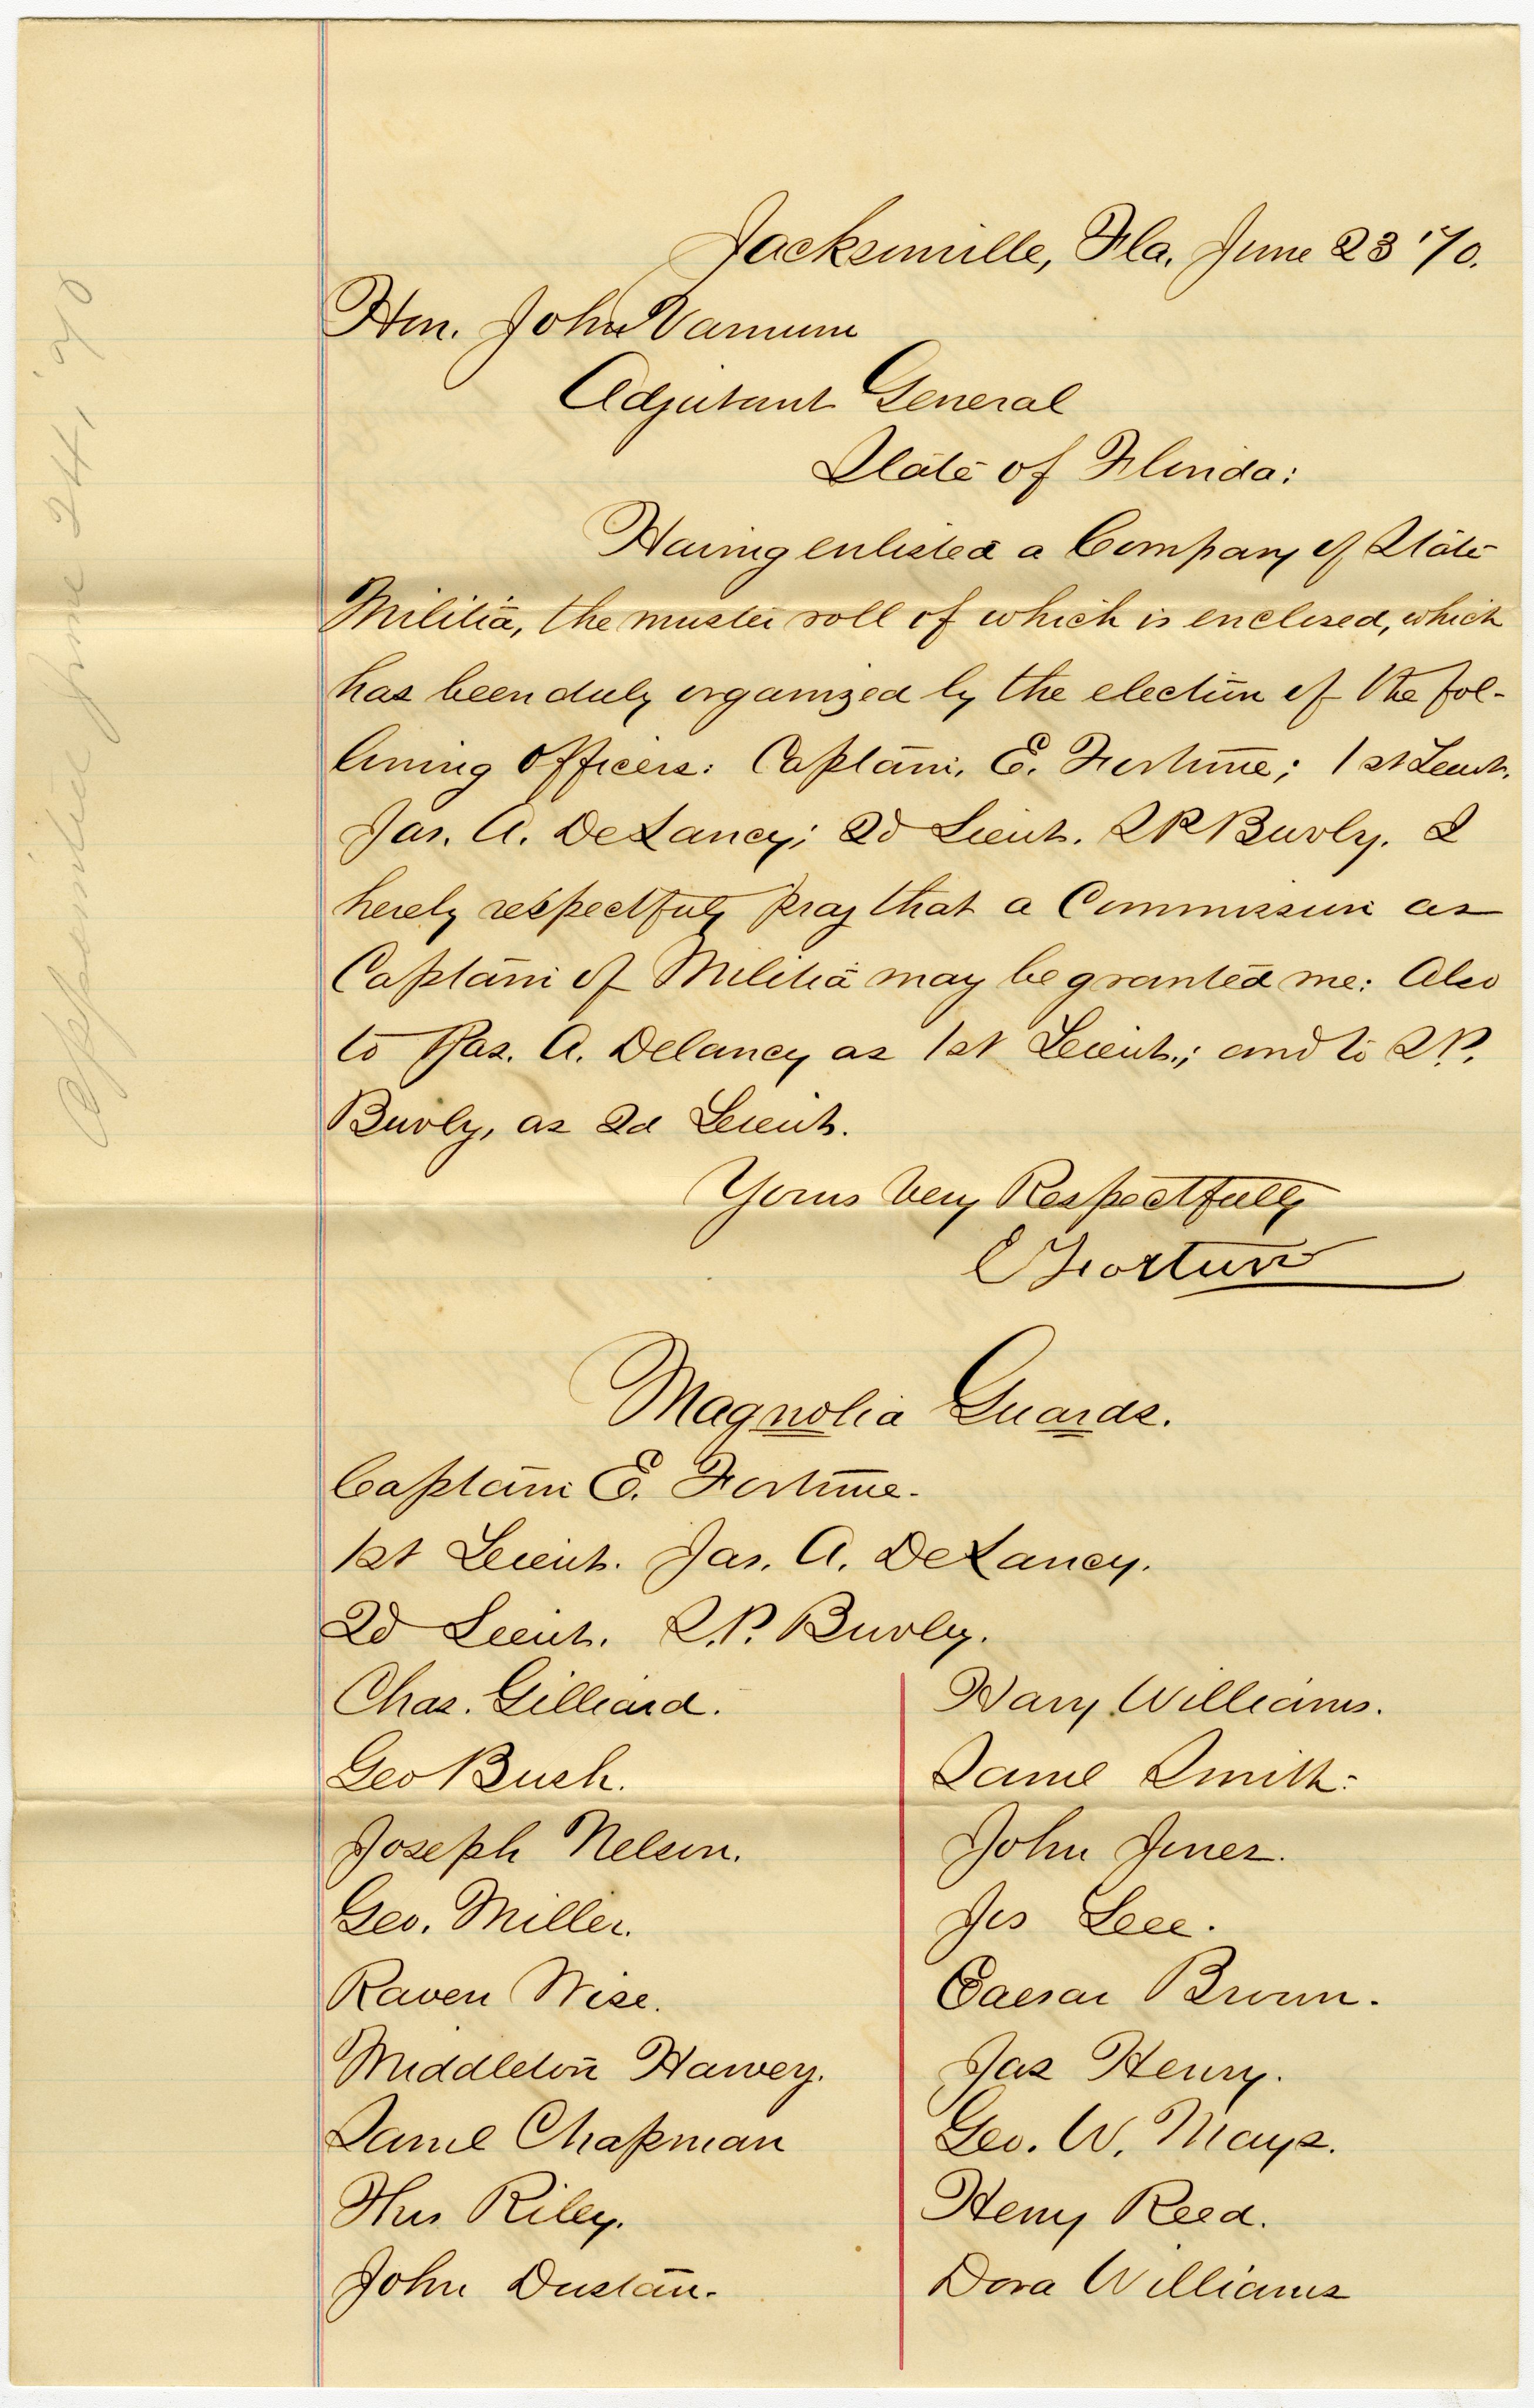 Jacksonville, Fla. June 23 '70.
Hon. John Varnum
Adjutant General
State of Florida:
Having enlisted a Company of State
Militia, the muster roll of which is enclosed, which
has been duly organized by the election of the fol-
lowing officers: Captain, E. Fortune; 1st Lieut.
Jas. A. DeLaney; 2d Lieut. S P Burly. I
hereby respectfuly pray that a Commission as
Captain of Militia may be granted me: Also
to Jas. A. Delaney as 1st Lieut.; and to S.P.
Burly, as 2d Lieut.
Yours Very Respectfully
E Fortune
Magnolia Guards.
Captain E. Fortune.
1st Lieut. Jas. A. DeLaney.
2d Lieut. S.P. Burly.
Chas. Gilliard.
Geo Bush.
Joseph Nelson.
Geo. Miller.
Raven Wise.
Middleton Harvey.
Samel Chapman
Thos Riley.
John Dustan.
Hary Williams.
Samel Smith.
John Jones.
Jos Lee.
Caesar Brown.
Jas Henry.
Geo. W. Mays.
Henry Reed.
Dora Williams
June 24, '70